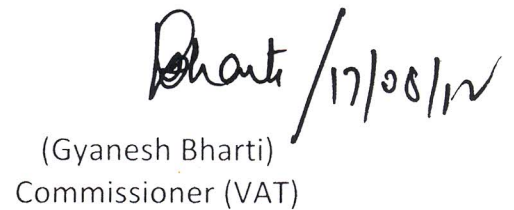 Bharti / 17/08/12
(Gyanesh Bharti)
Commissioner (VAT)